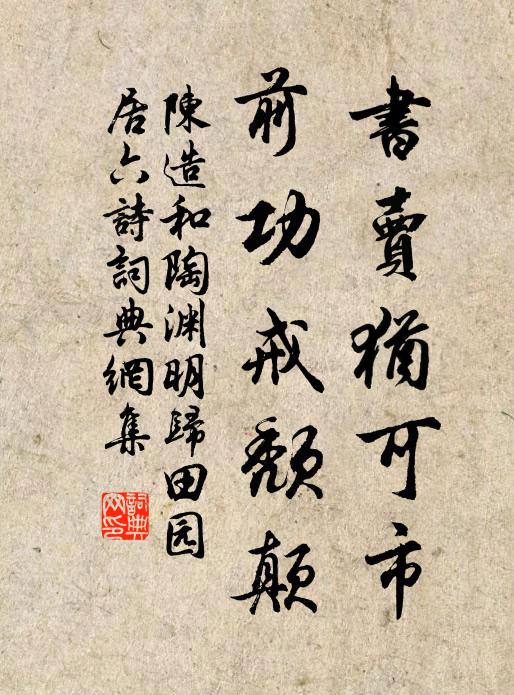 書賣猶可市
前功戒頹顛
陳造和陶淵明歸田园
居六詩詞典網集
詞典网印